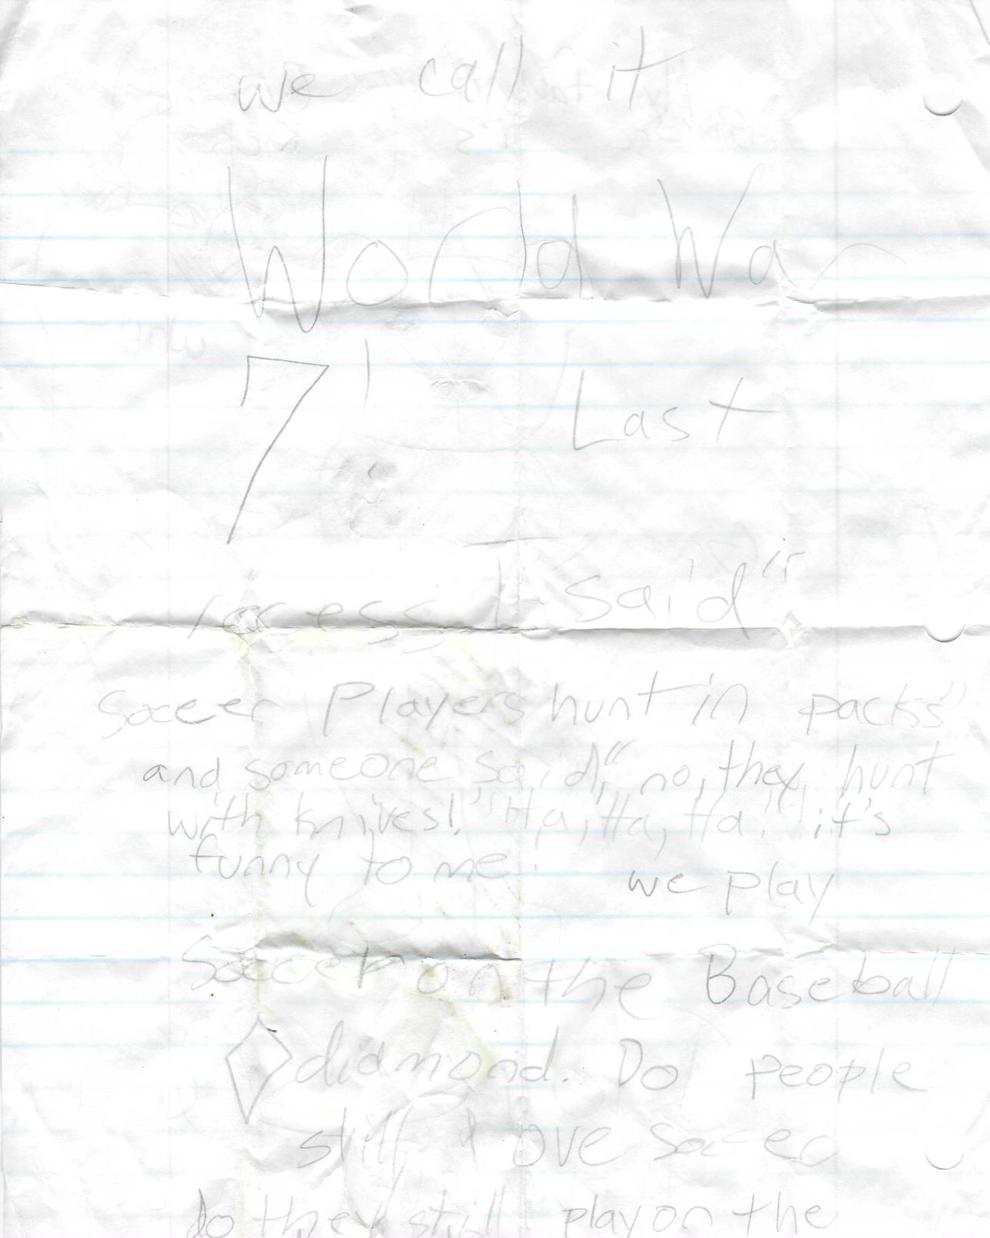 we call it
World War
7! Last
recess I said "
soccer Players hunt in packs"
and someone said," no, they hunt
with knives!" "Ha, Ha, Ha!" it's
funny to me! we play
Soccer on the Baseball
diamond. Do people
still love soccer
do they still play on the